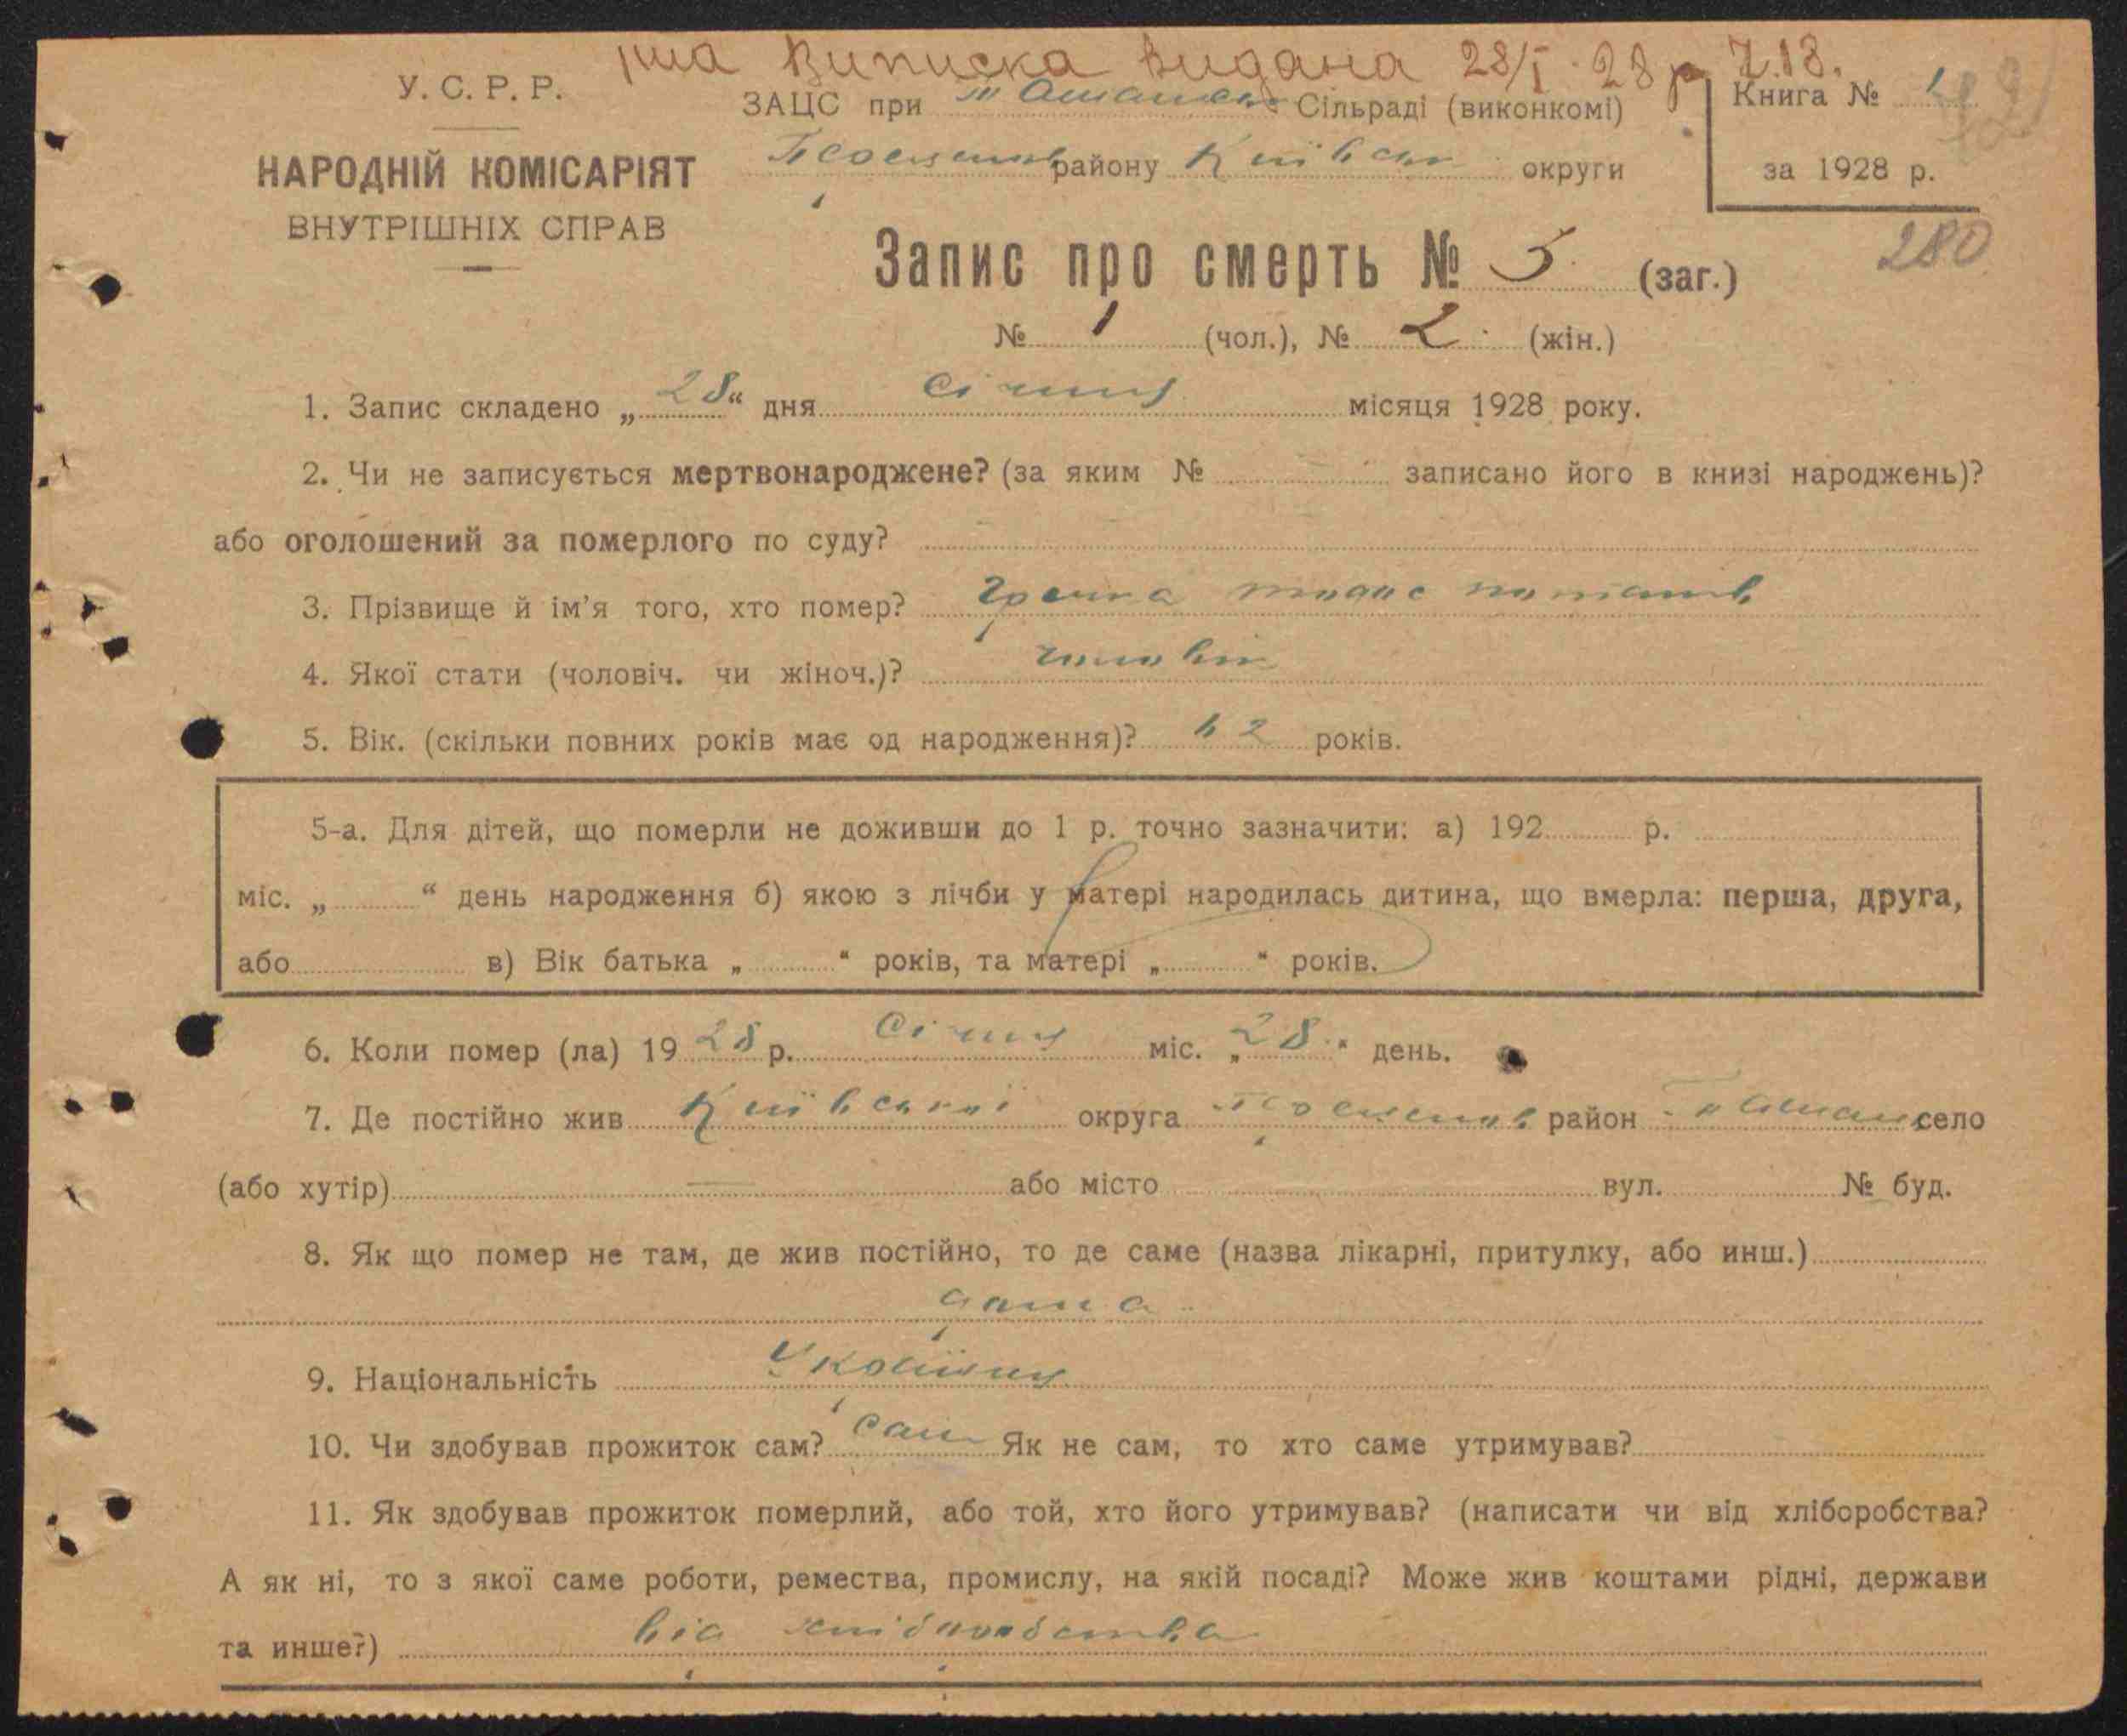 Виписка видана 28/I 28 р
У. С. Р. Р.
ЗАЦС при Сільраді (виконкомі)
Книга № 1
НАРОДНІЙ КОМІСАРІЯТ
району Київськ округи
за 1928 р.
ВНУТРІШНІХ СПРАВ
280
Запис про смерть № 3 (заг.)
№ 1 (чол.), № 2 (жін.)
1. Запис складено „28“ дня січня місяця 1928 року.
2. Чи не записується мертвонароджене? (за яким № записано його в книзі народжень)?
або оголошений за померлого по суду?
3. Прізвище й ім'я того, хто помер?
4. Якої стати (чоловіч. чи жіноч.)? чоловік
5. Вік. (скільки повних років має од народження)? 62 років.
5-а. Для дітей, що померли не доживши до 1 р. точно зазначити: а) 192 р.
міс. „ “ день народження б) якою з лічби у матері народилась дитина, що вмерла: перша, друга,
або в) Вік батька „ “ років, та матері „ “ років.
6. Коли помер (ла) 1928 р. Січня міс. „28“ день.
7. Де постійно жив Київської округа район село
(або хутір) — або місто вул. № буд.
8. Як що помер не там, де жив постійно, то де саме (назва лікарні, притулку, або инш.)
дома
9. Національність Україинця
10. Чи здобував прожиток сам? Сам Як не сам, то хто саме утримував?
11. Як здобував прожиток померлий, або той, хто його утримував? (написати чи від хліборобства?
А як ні, то з якої саме роботи, ремества, промислу, на якій посаді? Може жив коштами рідні, держави
та инше?) від хліборобства